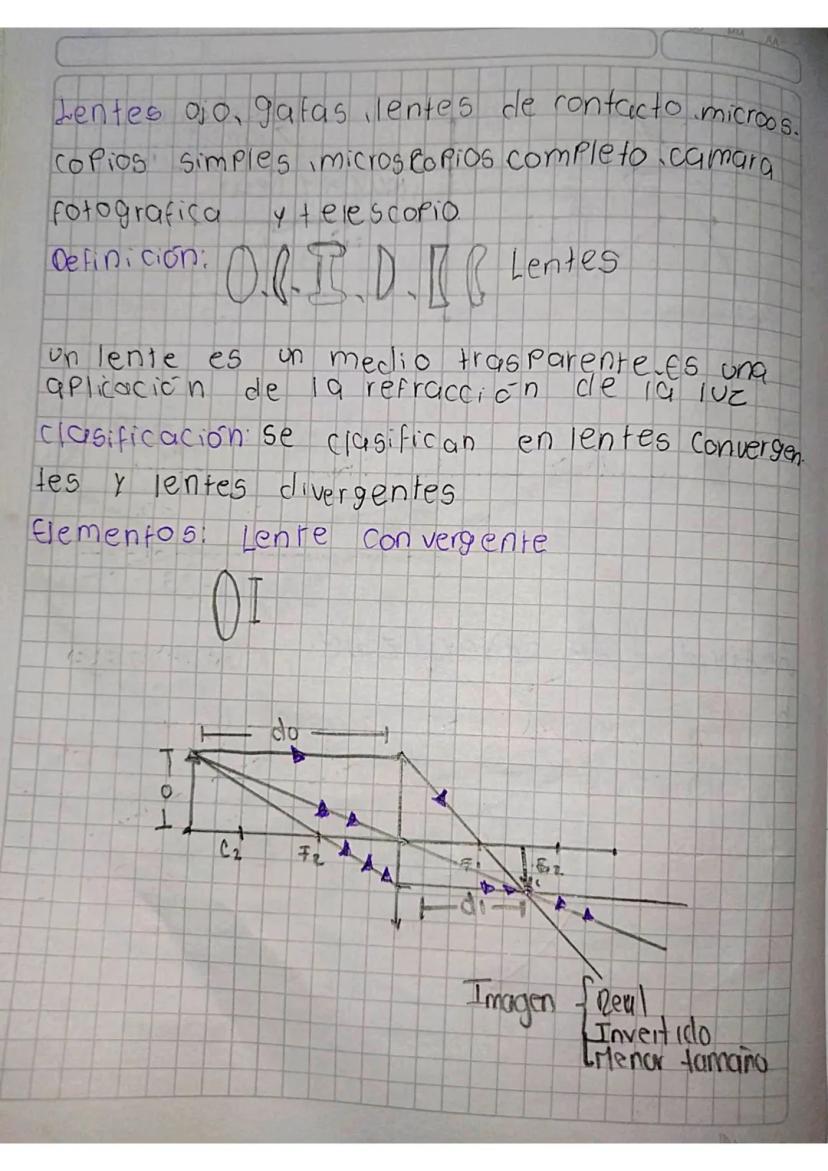 Lentes ojo, gafas, lentes de contacto, microos-
copios simples, microscopios completo, camara
fotografica y telescopio
Definición: Lentes
un lente es un medio trasparente. Es una
aplicación de la refracción de la luz
clasificación: se clasifican en lentes convergen-
tes y lentes divergentes
Elementos: Lente convergente
do
O
C2 F2 F1
di
Imagen Real
Invertido
Menor tamaño